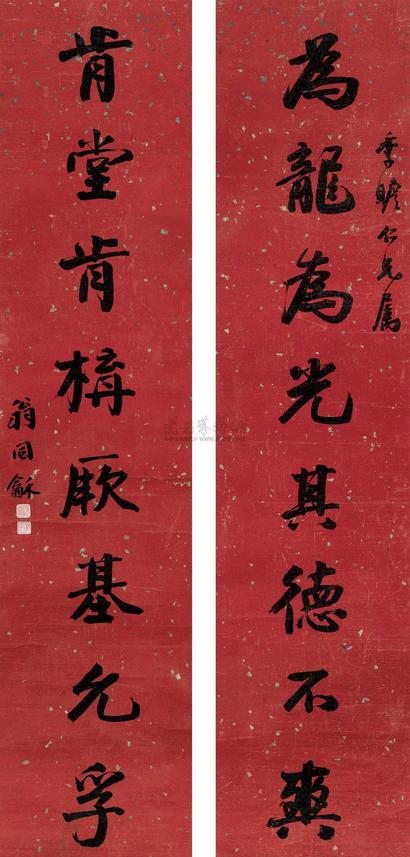 季瞻仁兄属
為龍為光其德不爽
肯堂肯構厥基允孚
翁同龢